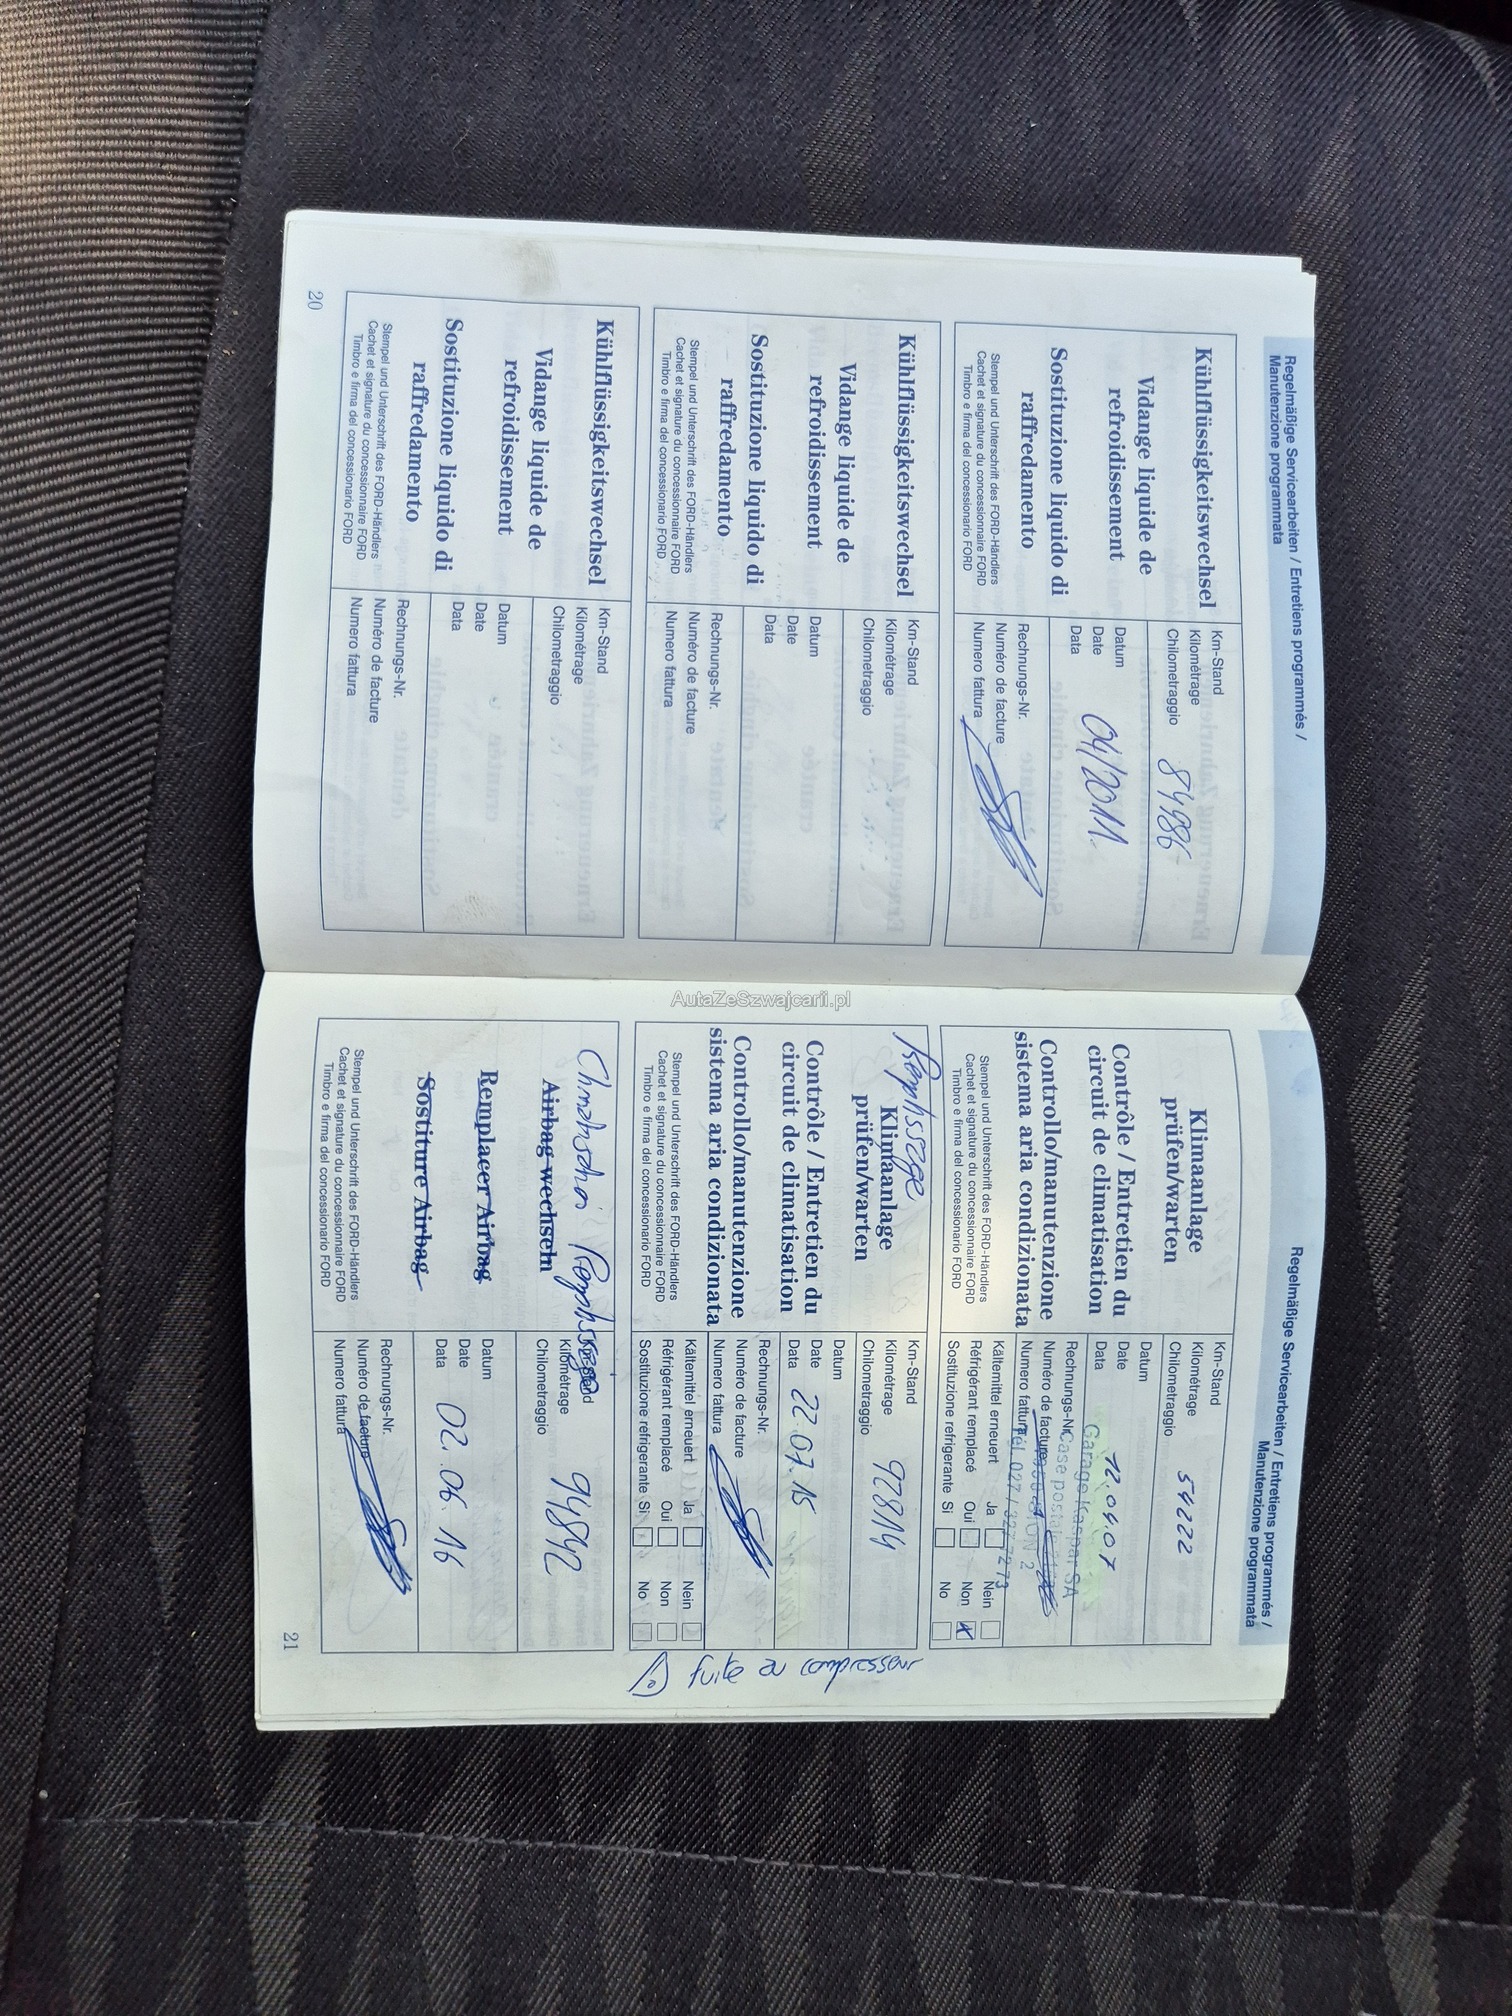 Regelmäßige Servicearbeiten / Entretiens programmés /
Manutenzione programmata
Kühlflüssigkeitswechsel
Vidange liquide de
refroidissement
Sostituzione liquido di
raffredamento
Stempel und Unterschrift des FORD-Händlers
Cachet et signature du concessionnaire FORD
Timbro e firma del concessionario FORD
Km-Stand
Kilométrage
Chilometraggio 84986
Datum
Date 04/2011
Data
Rechnungs-Nr.
Numéro de facture
Numero fattura
Kühlflüssigkeitswechsel
Vidange liquide de
refroidissement
Sostituzione liquido di
raffredamento
Stempel und Unterschrift des FORD-Händlers
Cachet et signature du concessionnaire FORD
Timbro e firma del concessionario FORD
Km-Stand
Kilométrage
Chilometraggio
Datum
Date
Data
Rechnungs-Nr.
Numéro de facture
Numero fattura
Kühlflüssigkeitswechsel
Vidange liquide de
refroidissement
Sostituzione liquido di
raffredamento
Stempel und Unterschrift des FORD-Händlers
Cachet et signature du concessionnaire FORD
Timbro e firma del concessionario FORD
Km-Stand
Kilométrage
Chilometraggio
Datum
Date
Data
Rechnungs-Nr.
Numéro de facture
Numero fattura
20
AutaZeSzwajcarii.pl
Regelmäßige Servicearbeiten / Entretiens programmés /
Manutenzione programmata
Klimaanlage
prüfen/warten
Contrôle / Entretien du
circuit de climatisation
Controllo/manutenzione
sistema aria condizionata
Stempel und Unterschrift des FORD-Händlers
Cachet et signature du concessionnaire FORD
Timbro e firma del concessionario FORD
Km-Stand
Kilométrage 54222
Chilometraggio
Datum
Date 12.04.07
Data Garage Kaspar SA
Rechnungs-Nr. Case postale
Numéro de facture SION 2
Numero fattura Tél. 027 / 327 72 73
Kältemittel erneuert Ja Nein
Réfrigérant remplacé Oui Non x
Sostituzione refrigerante Sì No
Klimaanlage
prüfen/warten
Contrôle / Entretien du
circuit de climatisation
Controllo/manutenzione
sistema aria condizionata
Stempel und Unterschrift des FORD-Händlers
Cachet et signature du concessionnaire FORD
Timbro e firma del concessionario FORD
Km-Stand
Kilométrage 92814
Chilometraggio
Datum
Date 22.07.15
Data
Rechnungs-Nr.
Numéro de facture
Numero fattura
Kältemittel erneuert Ja Nein
Réfrigérant remplacé Oui Non
Sostituzione refrigerante Sì No
fuite au compresseur
Airbag wechseln
Remplacer Airbag
Sostiture Airbag
Stempel und Unterschrift des FORD-Händlers
Cachet et signature du concessionnaire FORD
Timbro e firma del concessionario FORD
Kilométrage 94842
Chilometraggio
Datum
Date 02.06.16
Data
Rechnungs-Nr.
Numéro de facture
Numero fattura
21